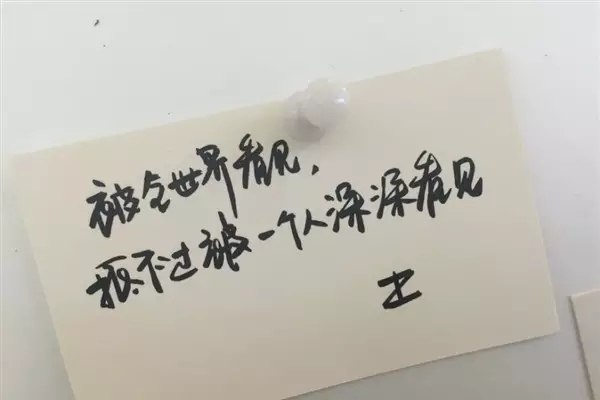 被全世界看见，
抵不过被一个人深深看见